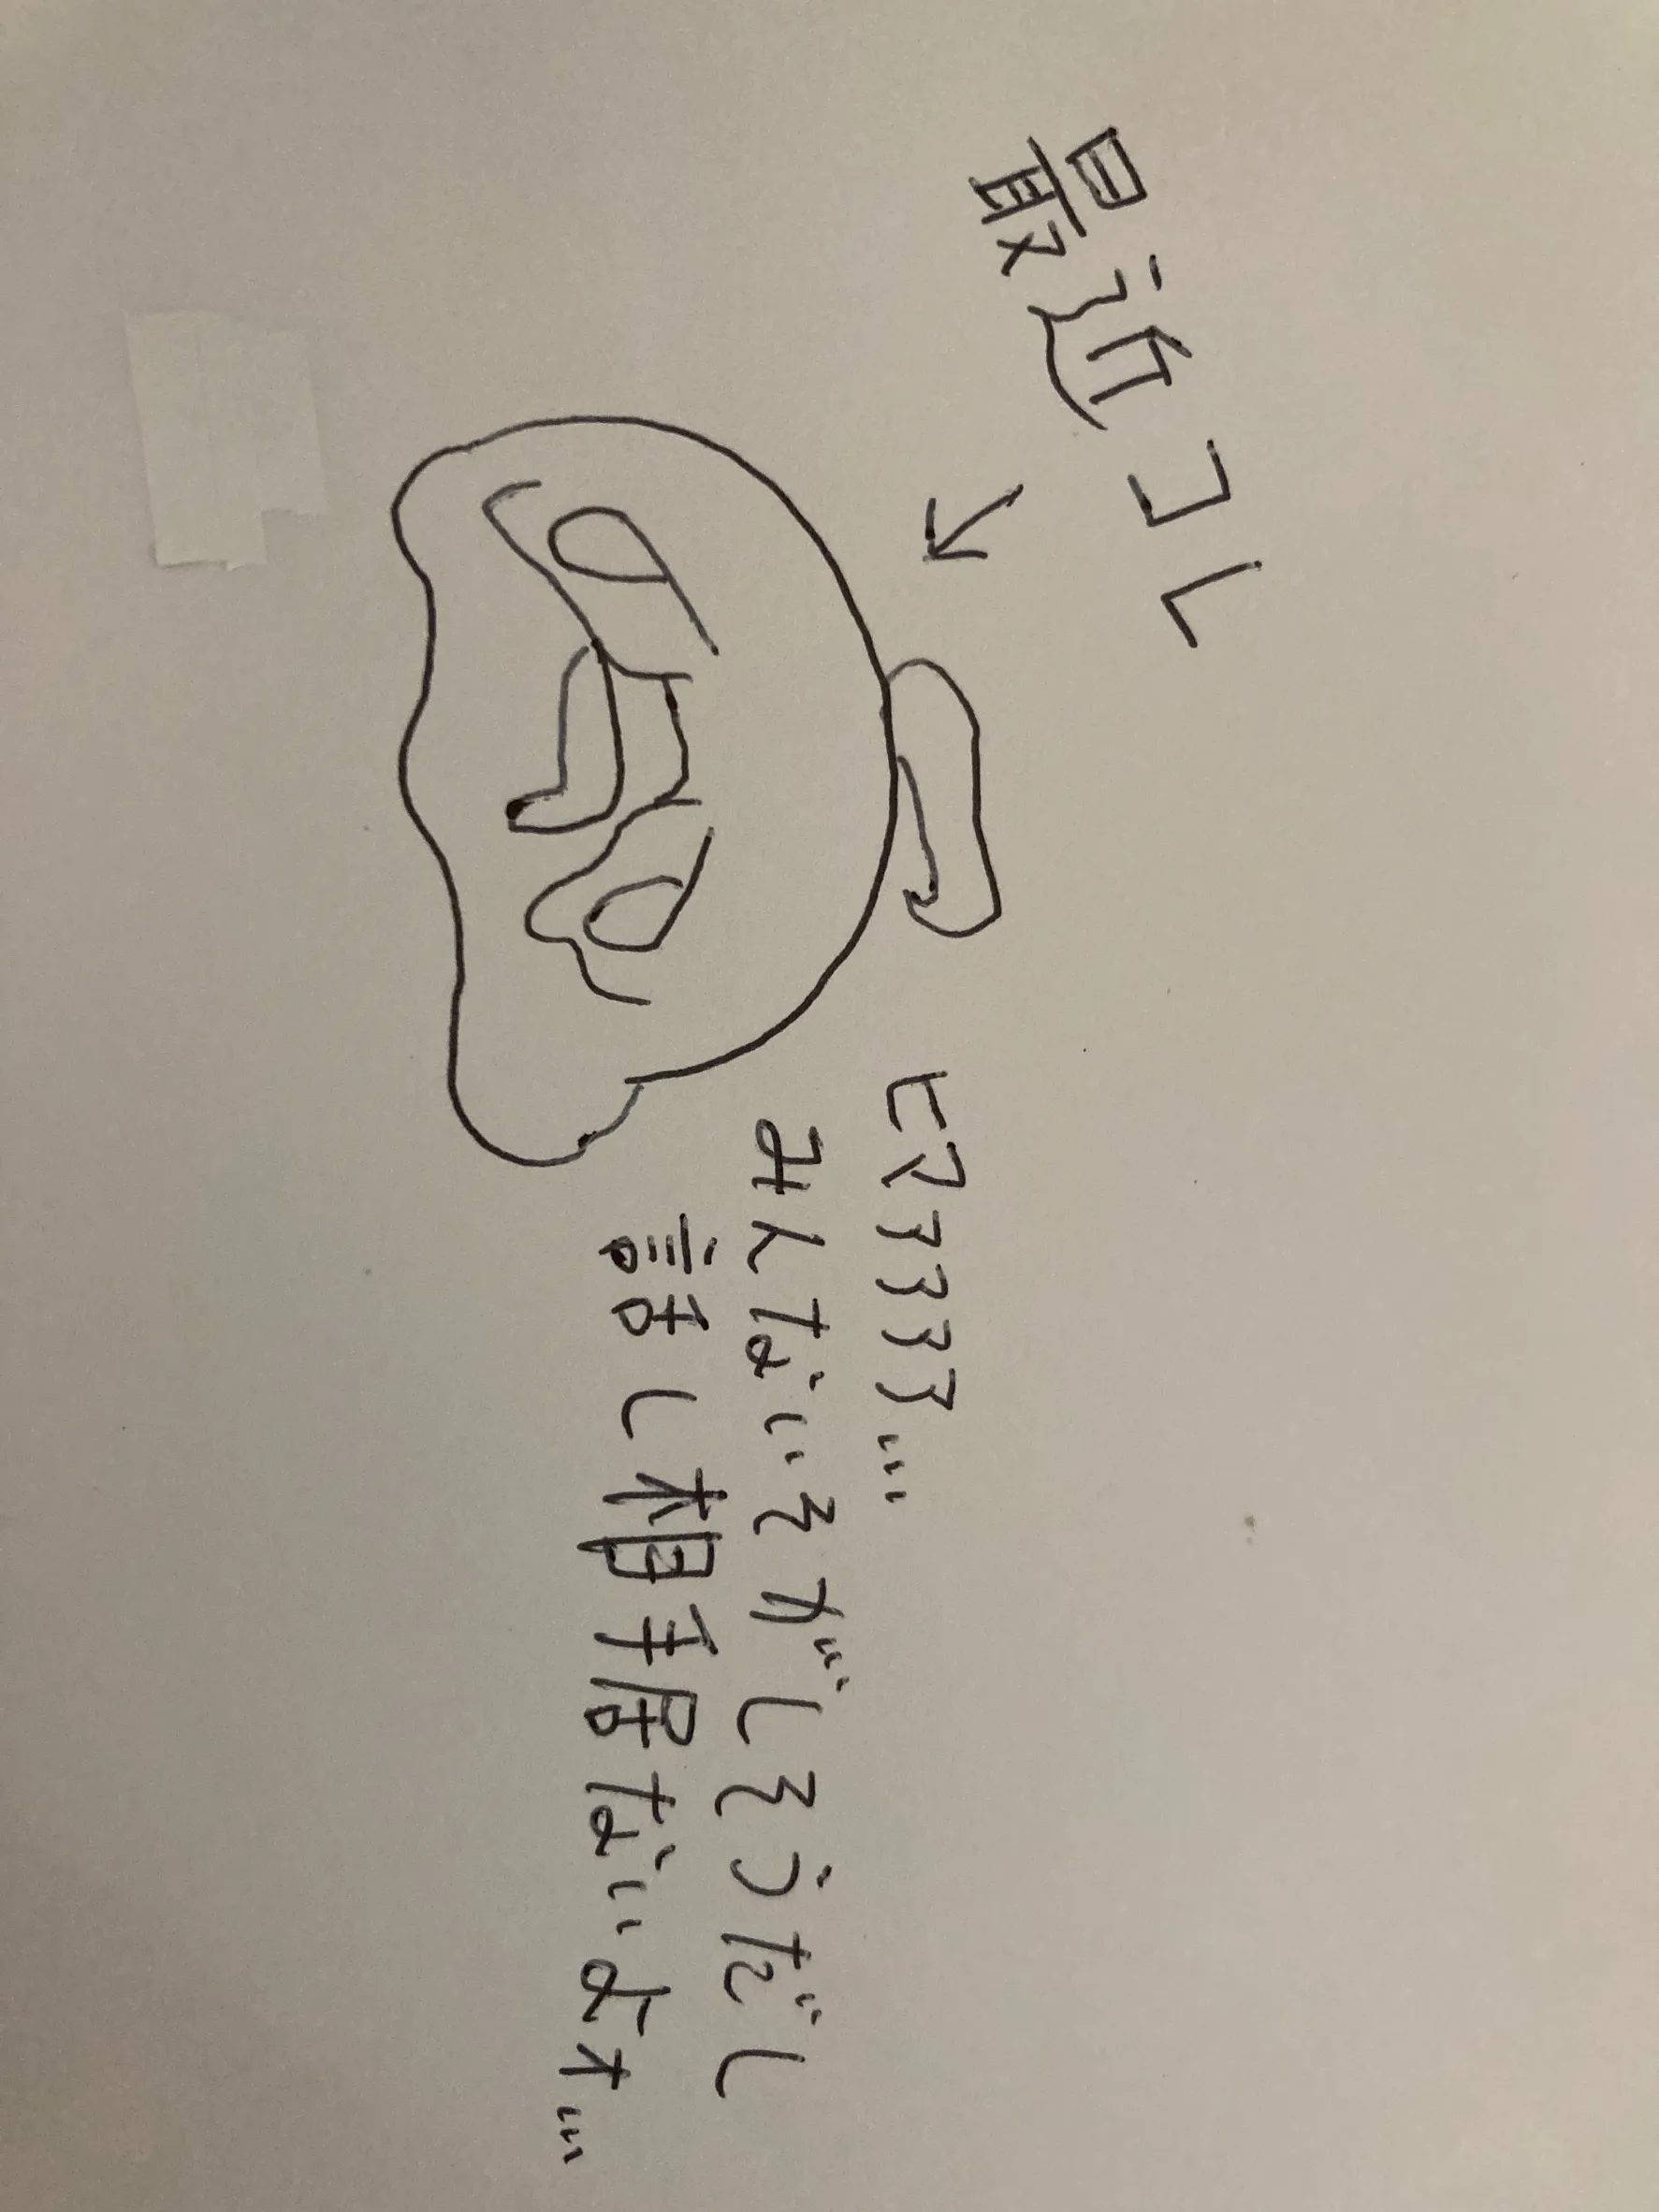 最近コレ
ヒマママママ…
みんないそがしそうだし
話し相手居ないよォ…